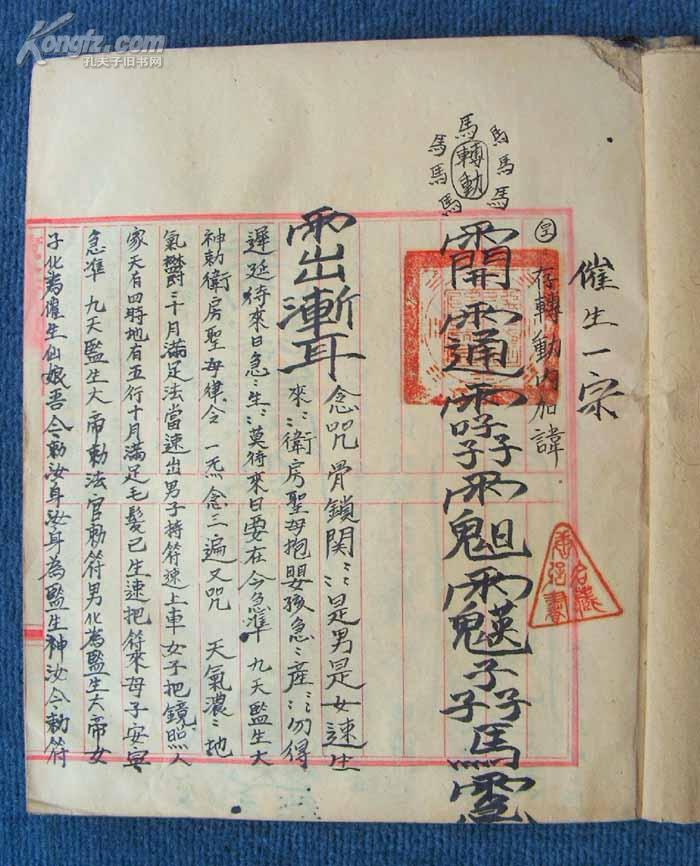 Kongfz.com
孔夫子旧书网
催生一宗
存轉動内加諱
馬
馬 馬
馬 轉動 馬
馬 馬
開通
馬
出漸耳
念咒 骨鎖関〻是男是女速生
來〻衛房聖母抱嬰孩急〻産〻勿得
遲延待來日急〻生〻莫待來日要在今急準 九天監生大
神勅衛房聖母律令 一炁念三遍又咒 天氣濃〻地
氣欝〻十月滿足法當速出男子持符速上車女子把鏡照人
家天有四時地有五行十月滿足毛髮已生速把符來母子安寧
急準 九天監生大帝勅法官勅符男化為監生大帝女
子化為催生仙娘吾今勅汝身汝身為監生神汝今勅符